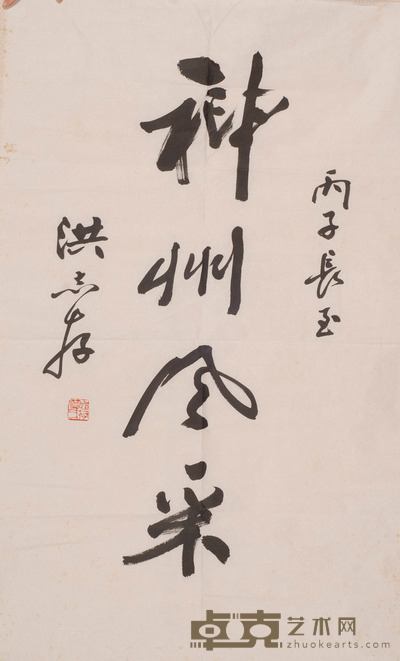 丙子長至
神州风采
洪志存
卓克艺术网
zhuokearts.com